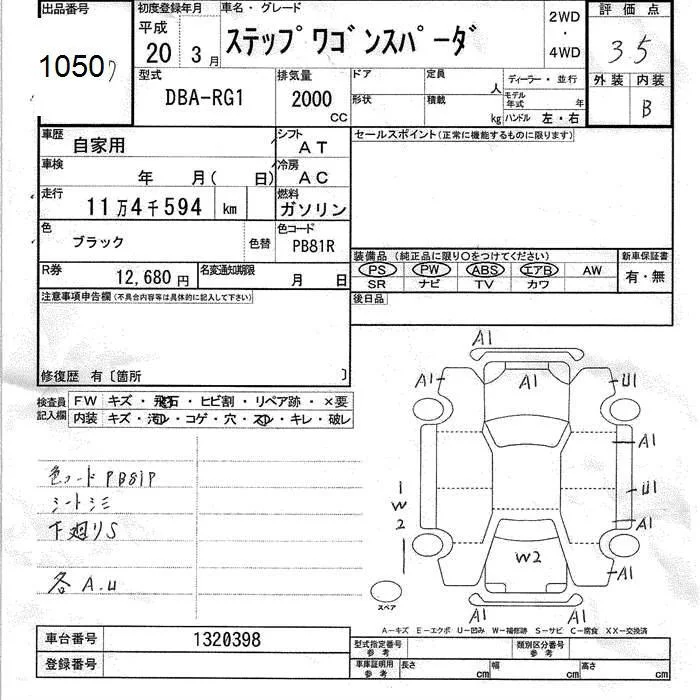 出品番号
10507
初度登録年月
平成
20 3月
車名・グレード
ステップワゴンスパーダ
2WD
・
4WD
評価点
35
外装 内装
B
型式
DBA-RG1
排気量
2000
CC
ドア
定員
人
形状
積載
kg
ディーラー・並行
モデル年式 年
ハンドル 左・右
車歴
自家用
シフト
AT
車検
年 月( 日)
冷房
AC
走行
11万4千594 km
燃料
ガソリン
色
ブラック
色替
色コード
PB81R
R券
12,680円
名変通知期限
月 日
セールスポイント(正常に機能するものに限ります)
装備品(純正品に限り〇をつけてください)
PS PW ABS エアB AW
SR ナビ TV カワ
新車保証書
有・無
後日品
注意事項申告欄(不具合内容等は具体的に記入して下さい)
修復歴 有〔箇所 〕
検査員記入欄
FW キズ・飛石・ヒビ割・リペア跡・×要
内装 キズ・汚れ・コゲ・穴・スレ・キレ・破レ
色コードPB81P
シートシミ
下廻りS
各A.U
A1
A1 A1 U1
A1
U1
1
W
2
A1
W2
A1
A1 A1
スペア
A-キズ E-エクボ U-凹み W-補修跡 S-サビ C-腐食 XX-交換済
車台番号
1320398
登録番号
型式指定番号
参考
類別区分番号
参考
車庫証明用
参考
長さ cm
幅 cm
高さ cm